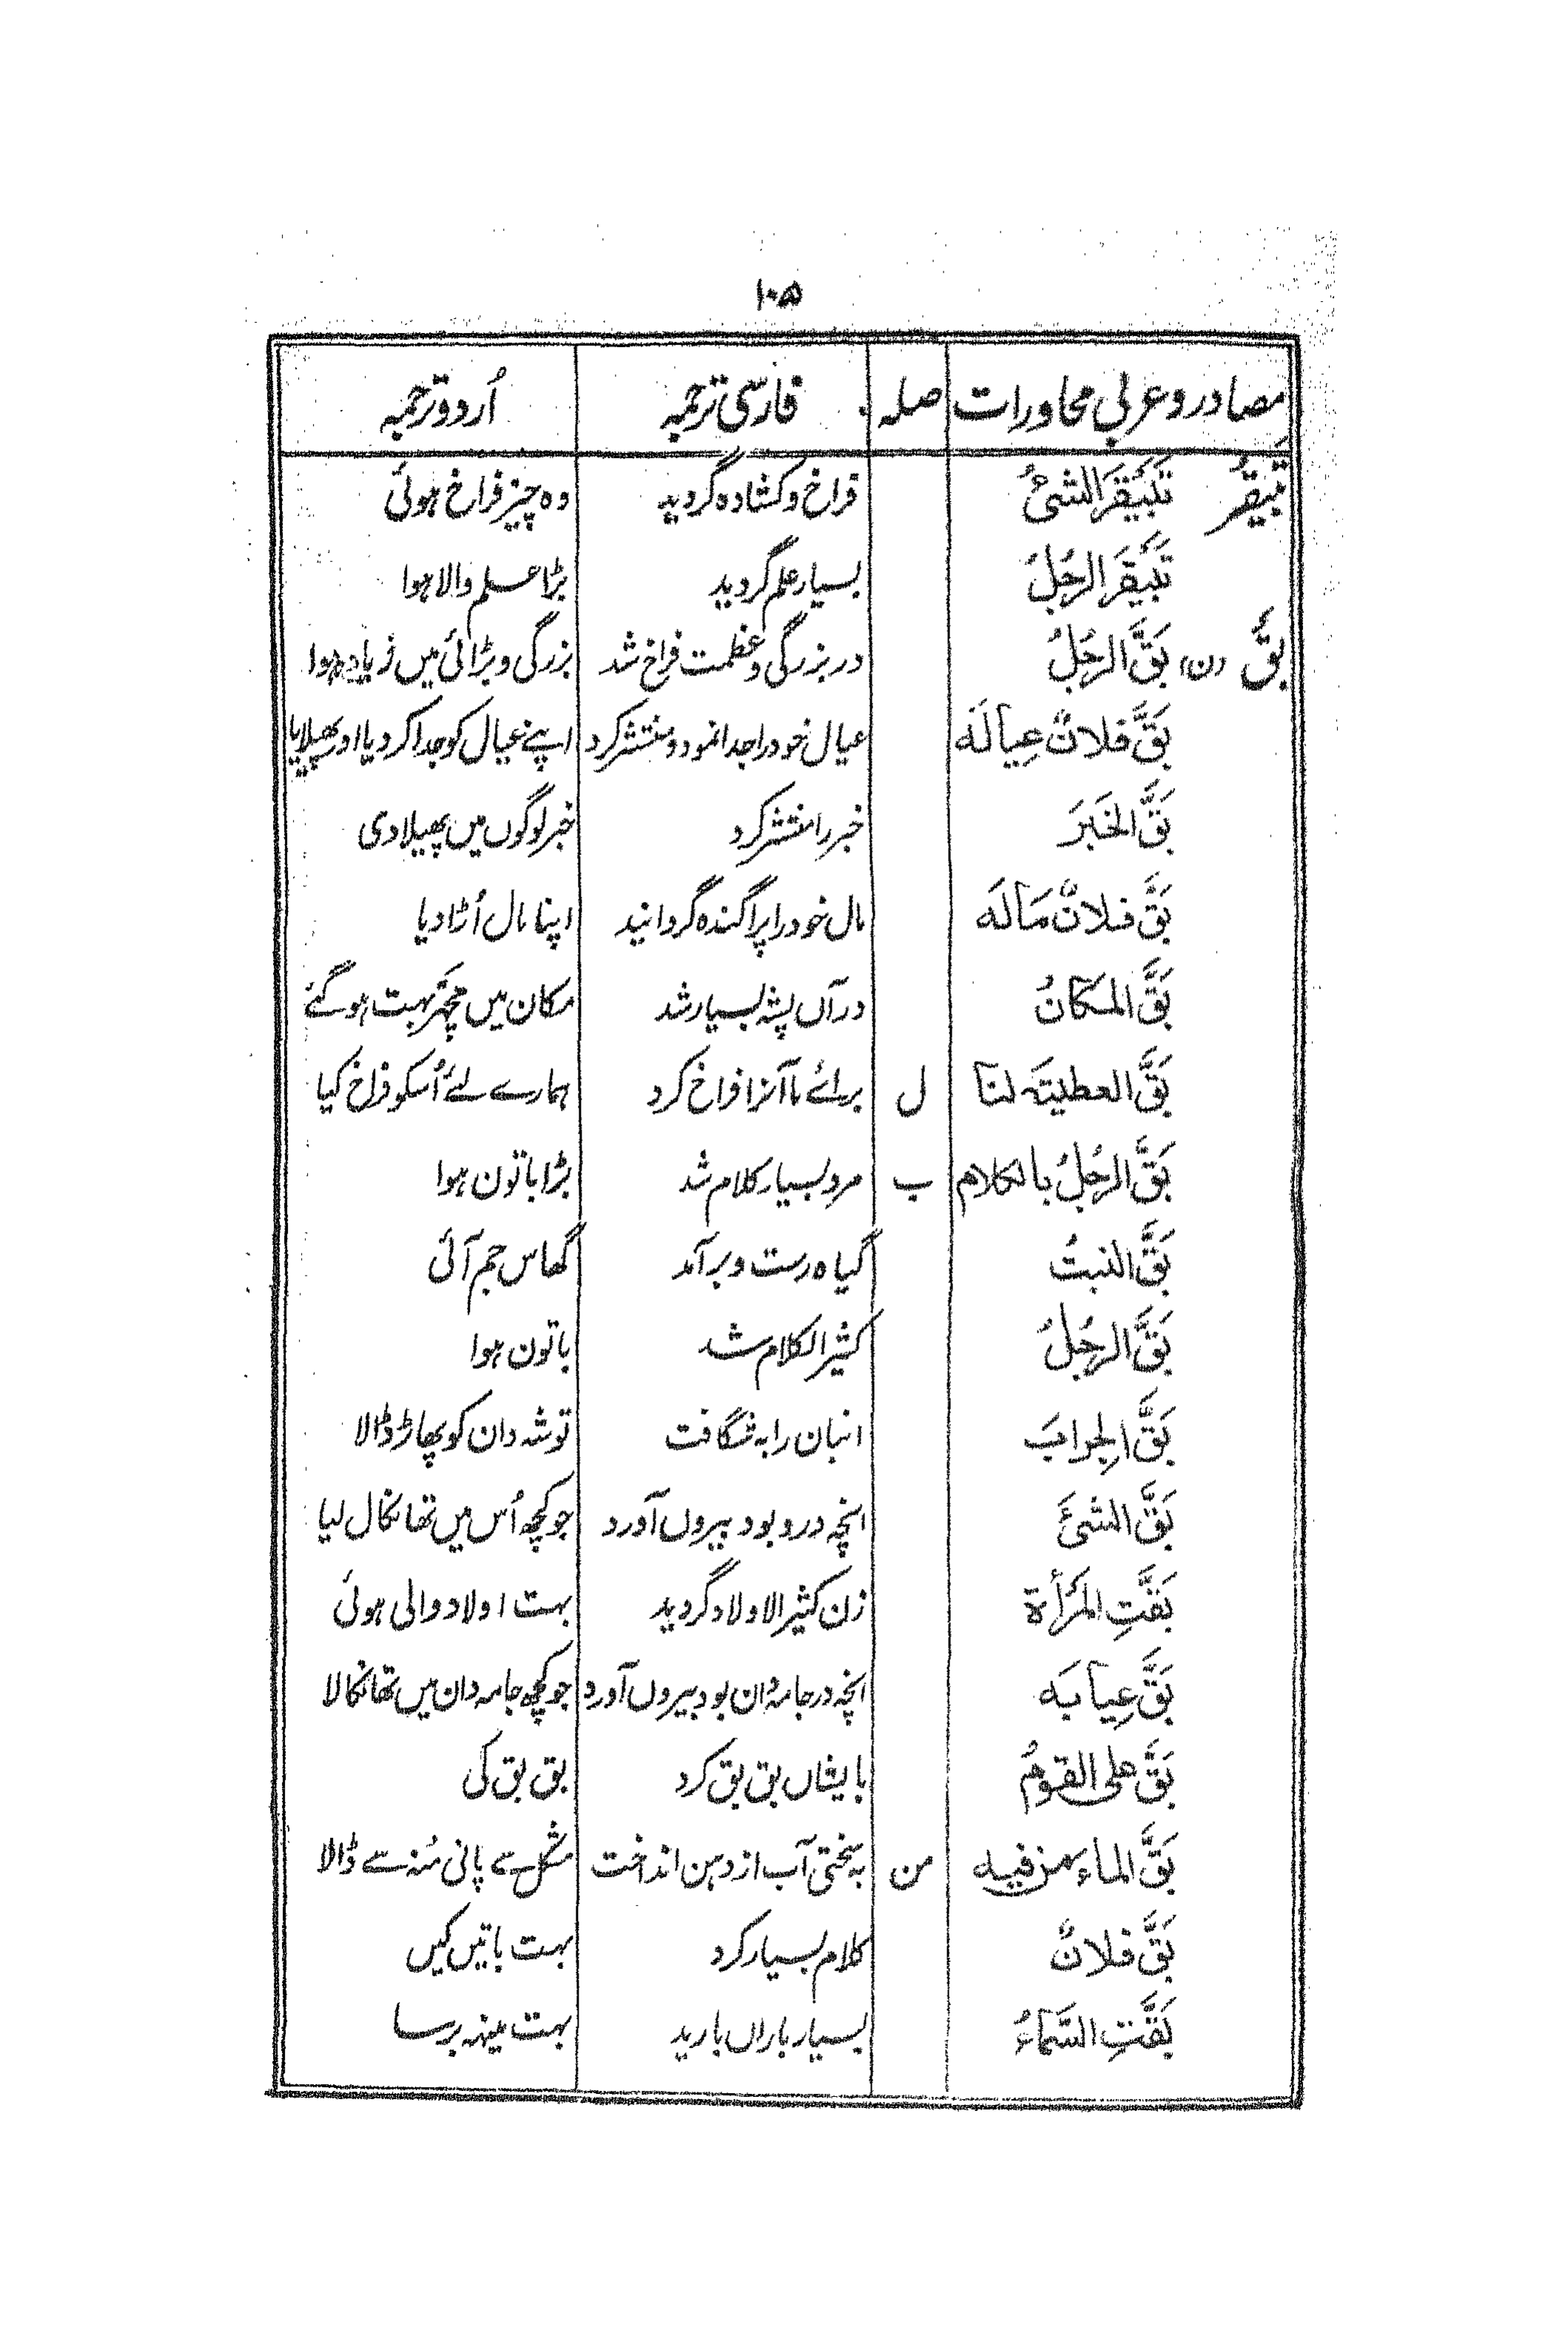 ۱۰۵
مصادر و عربی محاورات صلہ فارسی ترجمہ اُردو ترجمہ
تَبَیقُر تَبَیْقَرَ الشیُٔ فراخ و کشادہ گردید وہ چیز فراخ ہوئی
تَبَیْقَرَ الرجُلُ بسیار علم گردید بڑا علم والا ہوا
بَقّ (ن) بَقَّ الرجُلُ در بزرگی و عظمت فراخ شد بزرگی و بڑائی میں زیادہ ہوا
بَقَّ فلانٌ عِیالَہ عیال خود را جدا نمود و منتشر کرد اپنے عیال کو جدا کر دیا اور پھیلایا
بَقَّ الخَبَرَ خبر را منتشر کرد خبر لوگوں میں پھیلا دی
بَقَّ فلانٌ مَالَہ مال خود را پراگندہ گردانید اپنا مال اُڑا دیا
بَقَّ المکانُ در آں پشہ بسیار شد مکان میں مچھر بہت ہو گئے
بَقَّ العطیتَہ لنَا ل برائے ما آنرا فراخ کرد ہمارے لئے اُسکو فراخ کیا
بَقَّ الرجُلُ بالکلام ب مرد بسیار کلام شد بڑا باتون ہوا
بَقَّ النبتُ گیاہ رست و برآمد گھاس جم آئی
بَقَّ الرجُلُ کثیر الکلام شد باتون ہوا
بَقَّ الجِرابَ انبان را بہ شگافت توشہ دان کو پھاڑ ڈالا
بَقَّ الشیَٔ انچہ درو بود بیروں آورد جو کچھ اُس میں تھا نکال لیا
بَقَّتِ المَرْأۃ زن کثیر الاولاد گردید بہت اولاد والی ہوئی
بَقَّ عِیابَہ انچہ در جامہ دان بود بیروں آورد جو کچھ جامہ دان میں تھا نکالا
بَقَّ علی القومُ بایشاں بق بق کرد بق بق کی
بَقَّ الماء من فیہ من بہ سختی آب از دہن انداخت مشکل سے پانی مُنہ سے ڈالا
بَقَّ فلانٌ کلام بسیار کرد بہت باتیں کیں
بَقَّتِ السَّماءُ بسیار باراں بارید بہت مینہ برسا